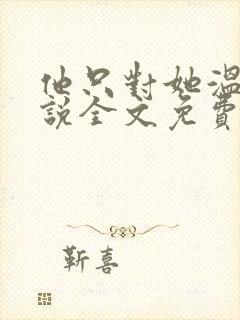 他只對她溫
說全文免費
靳喜